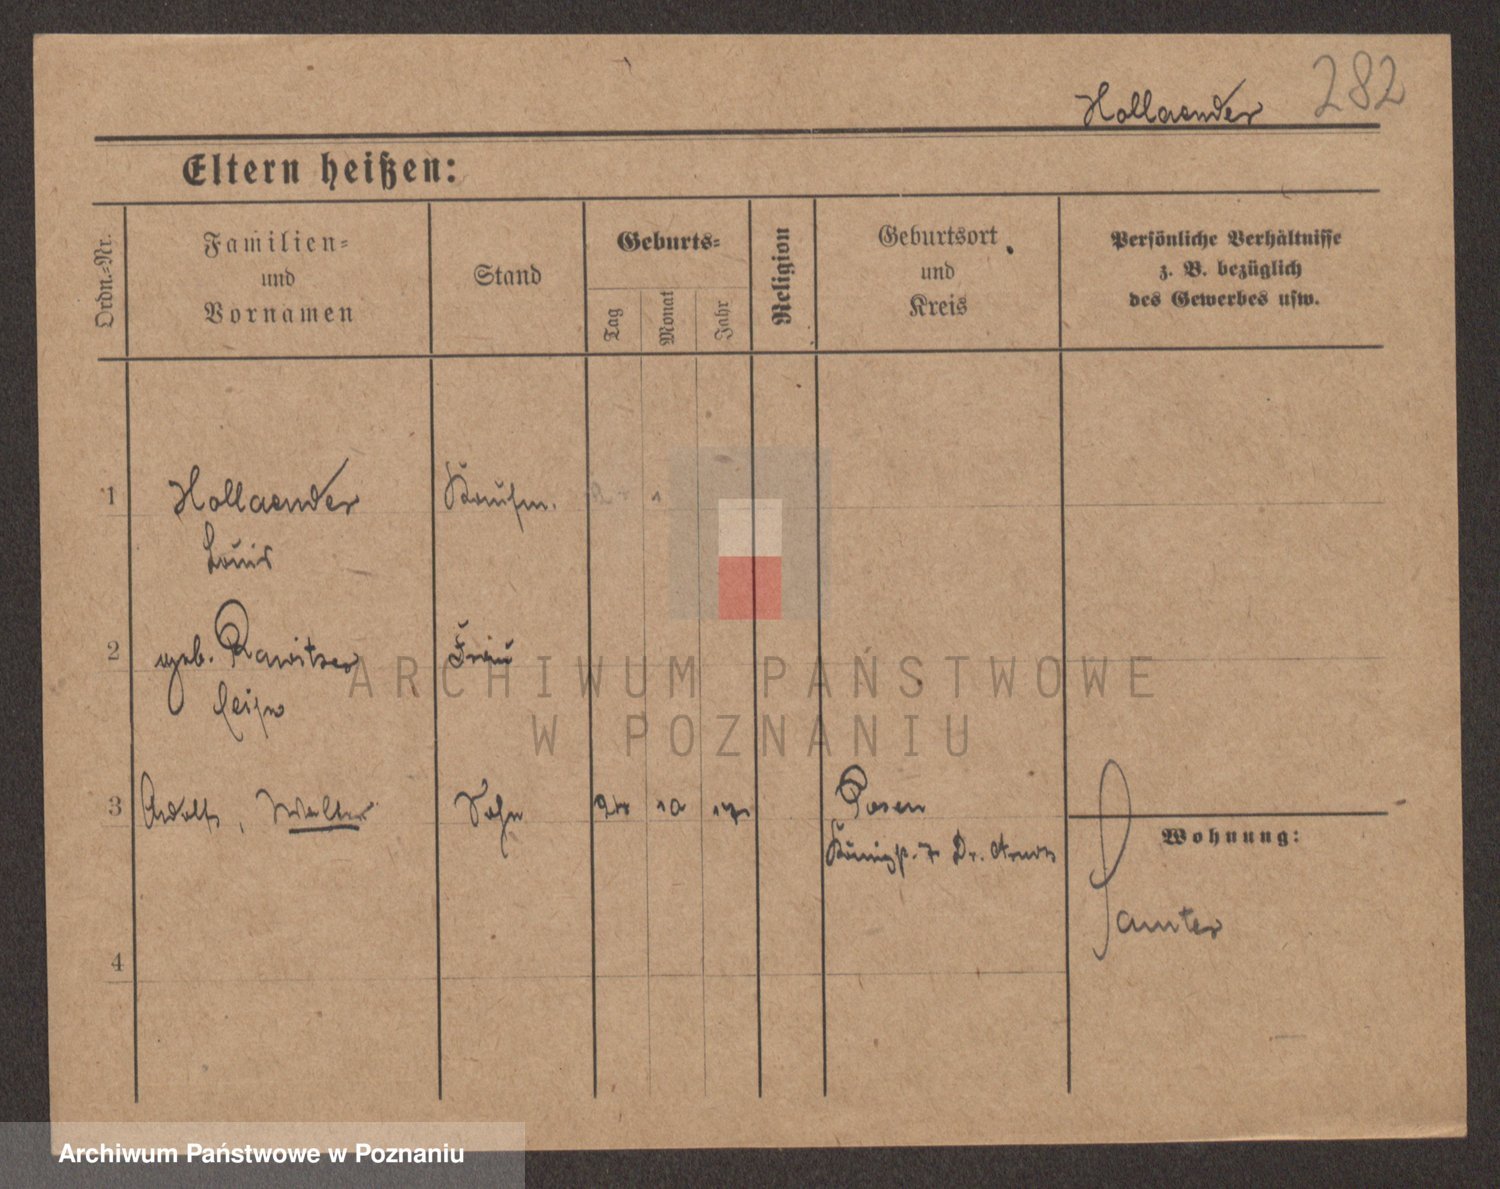 282
Hollaender
Eltern heißen:
Ordn.-Nr.
Familien-
und
Vornamen
Stand
Geburts-
Tag
Monat
Jahr
Religion
Geburtsort
und
Kreis
Persönliche Verhältnisse
z. B. bezüglich
des Gewerbes usw.
1
Hollaender
Kaufm.
Louis
2
geb.
Frau
3
Adolf, Walter
Sohn
10
Posen
Königsp. 7 Dr.
Wohnung:
Samter
4
ARCHIWUM PAŃSTWOWE
W POZNANIU
Archiwum Państwowe w Poznaniu